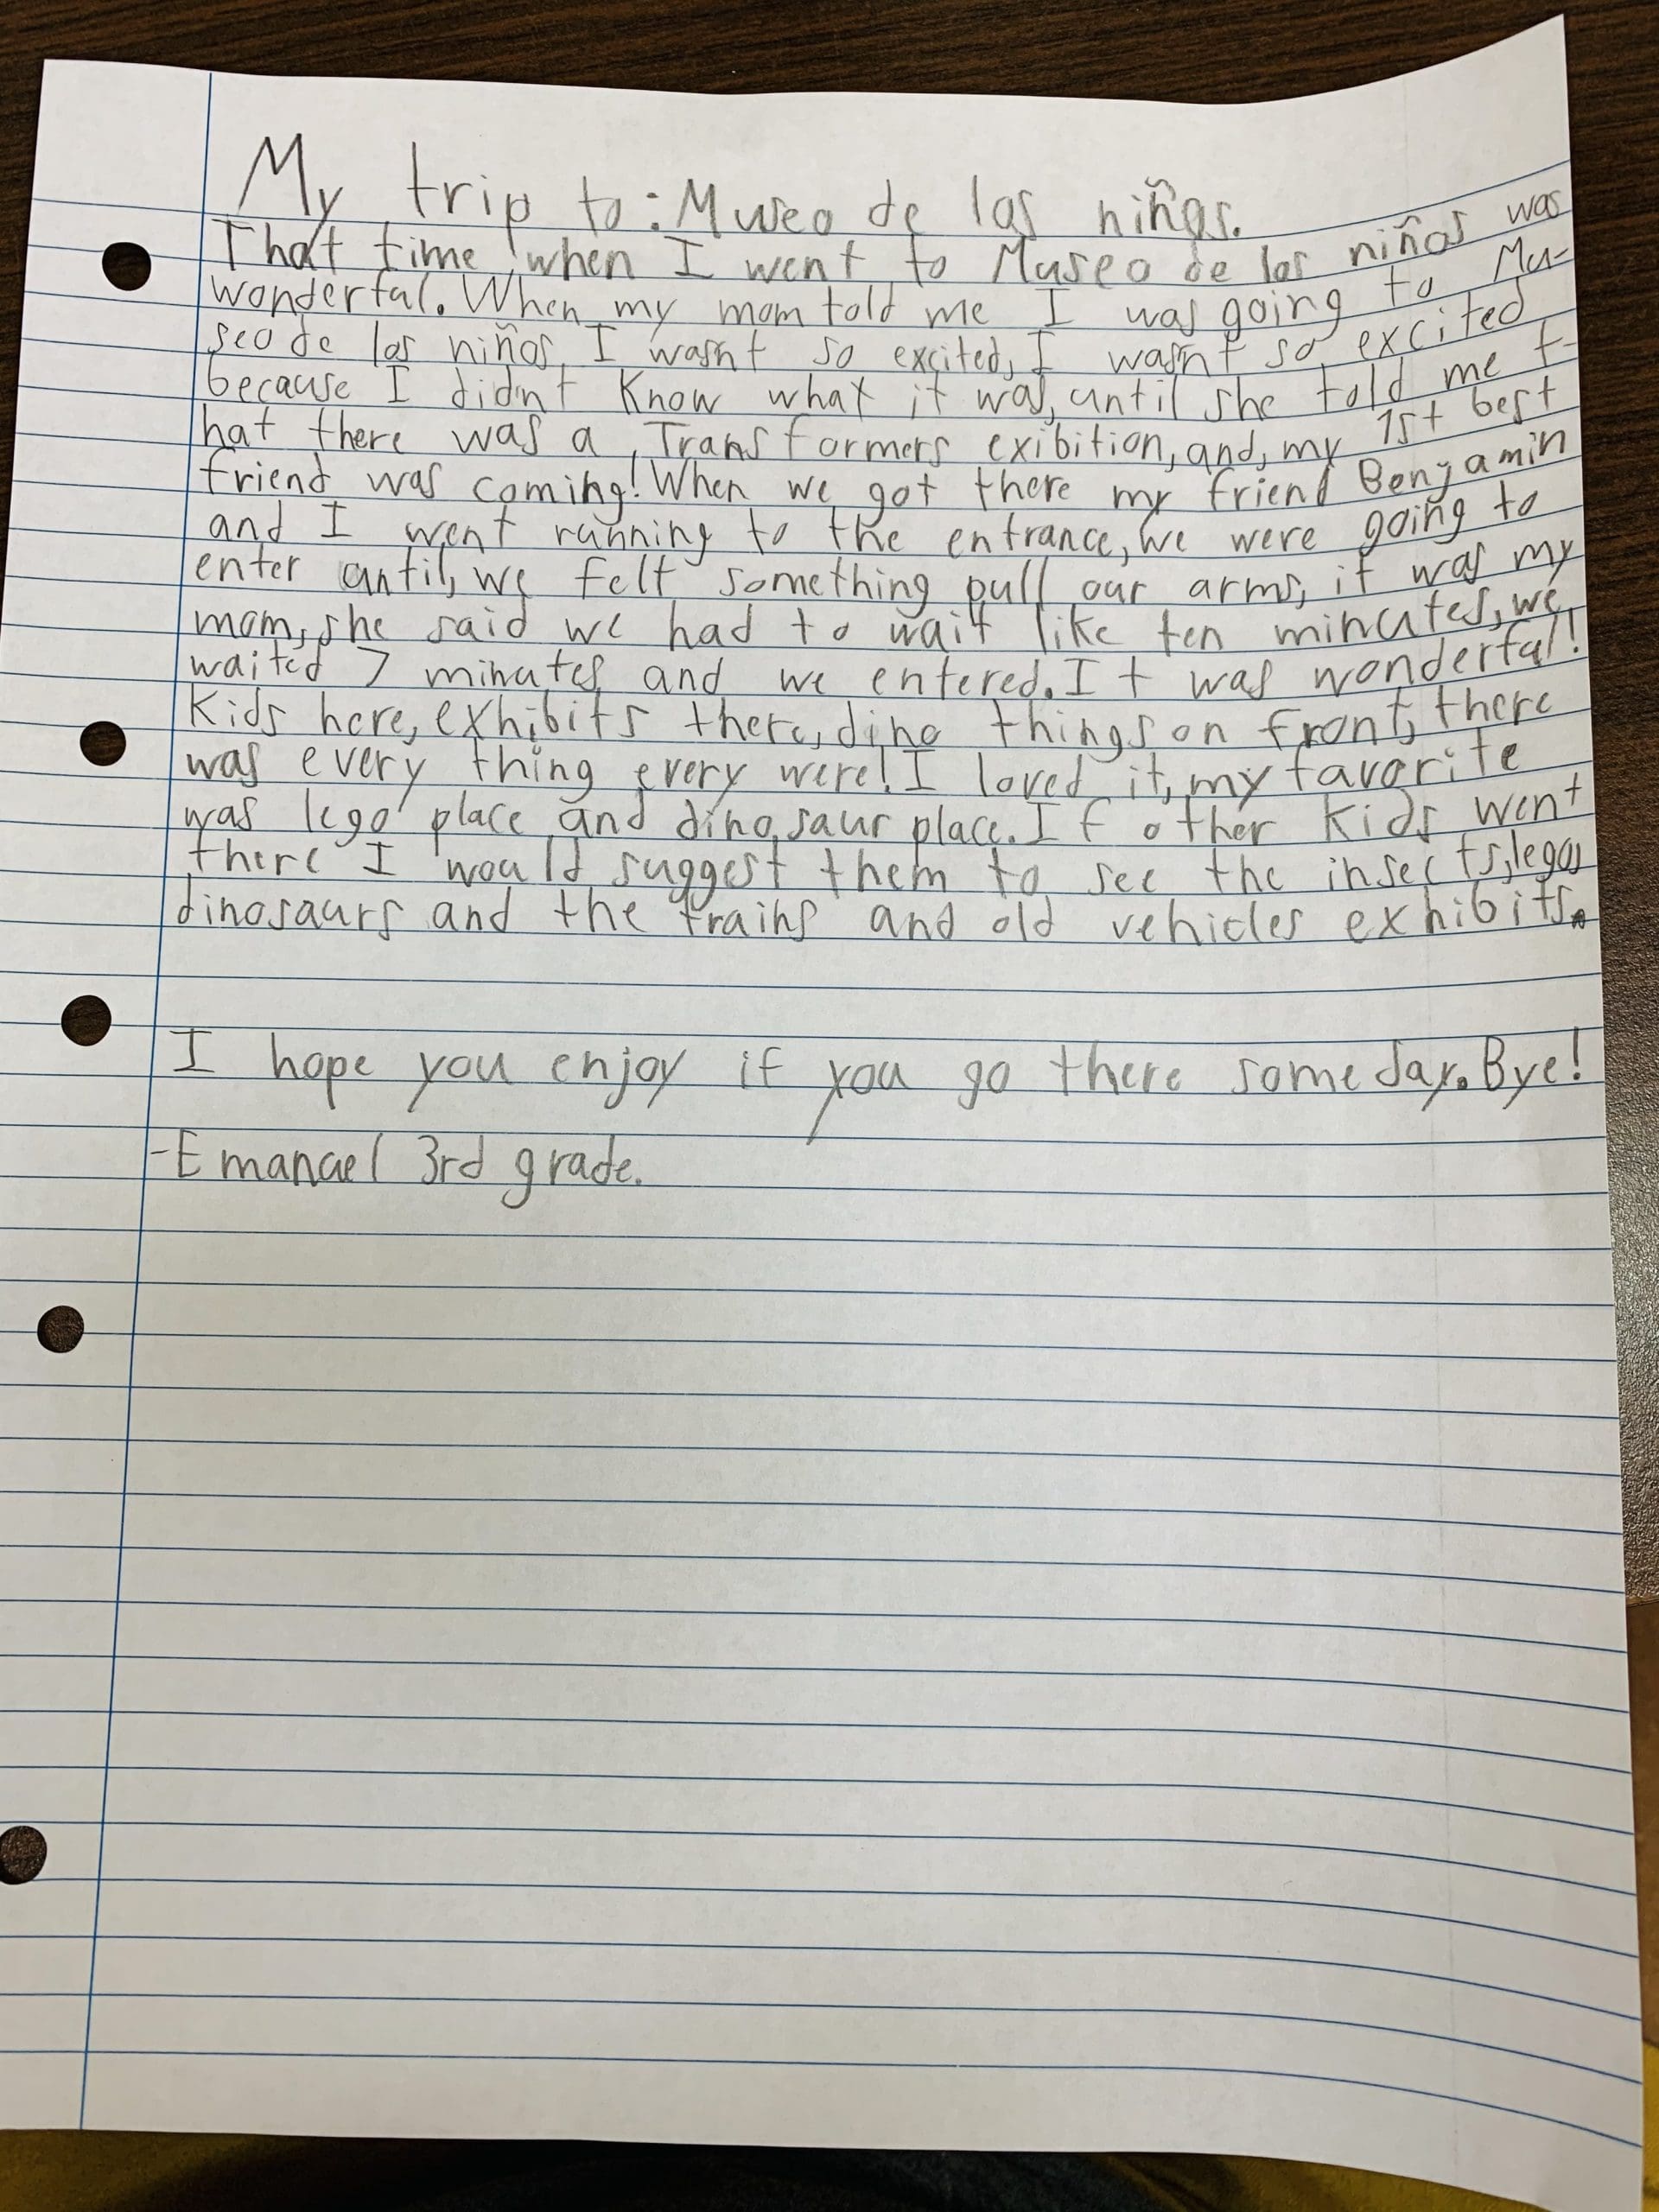 My trip to: Museo de los niños.
That time when I went to Museo de los niños was
wonderful. When my mom told me I was going to Mu-
seo de los niños, I wasn't so excited, I wasn't so excited
because I didn't know what it was, until she told me t-
hat there was a Transformers exibition, and, my 1st best
friend was coming! When we got there my friend Benjamin
and I went running to the entrance, we were going to
enter until, we felt something pull our arms, it was my
mom, she said we had to wait like ten minutes, we
waited 7 minutes and we entered. It was wonderful!
Kids here, exhibits there, dino things on front, there
was every thing every were! I loved it, my favorite
was lego place and dinosaur place. If other kids went
there I would suggest them to see the insects, legos
dinosaurs and the trains and old vehicles exhibits.
I hope you enjoy if you go there someday. Bye!
-Emanuel 3rd grade.